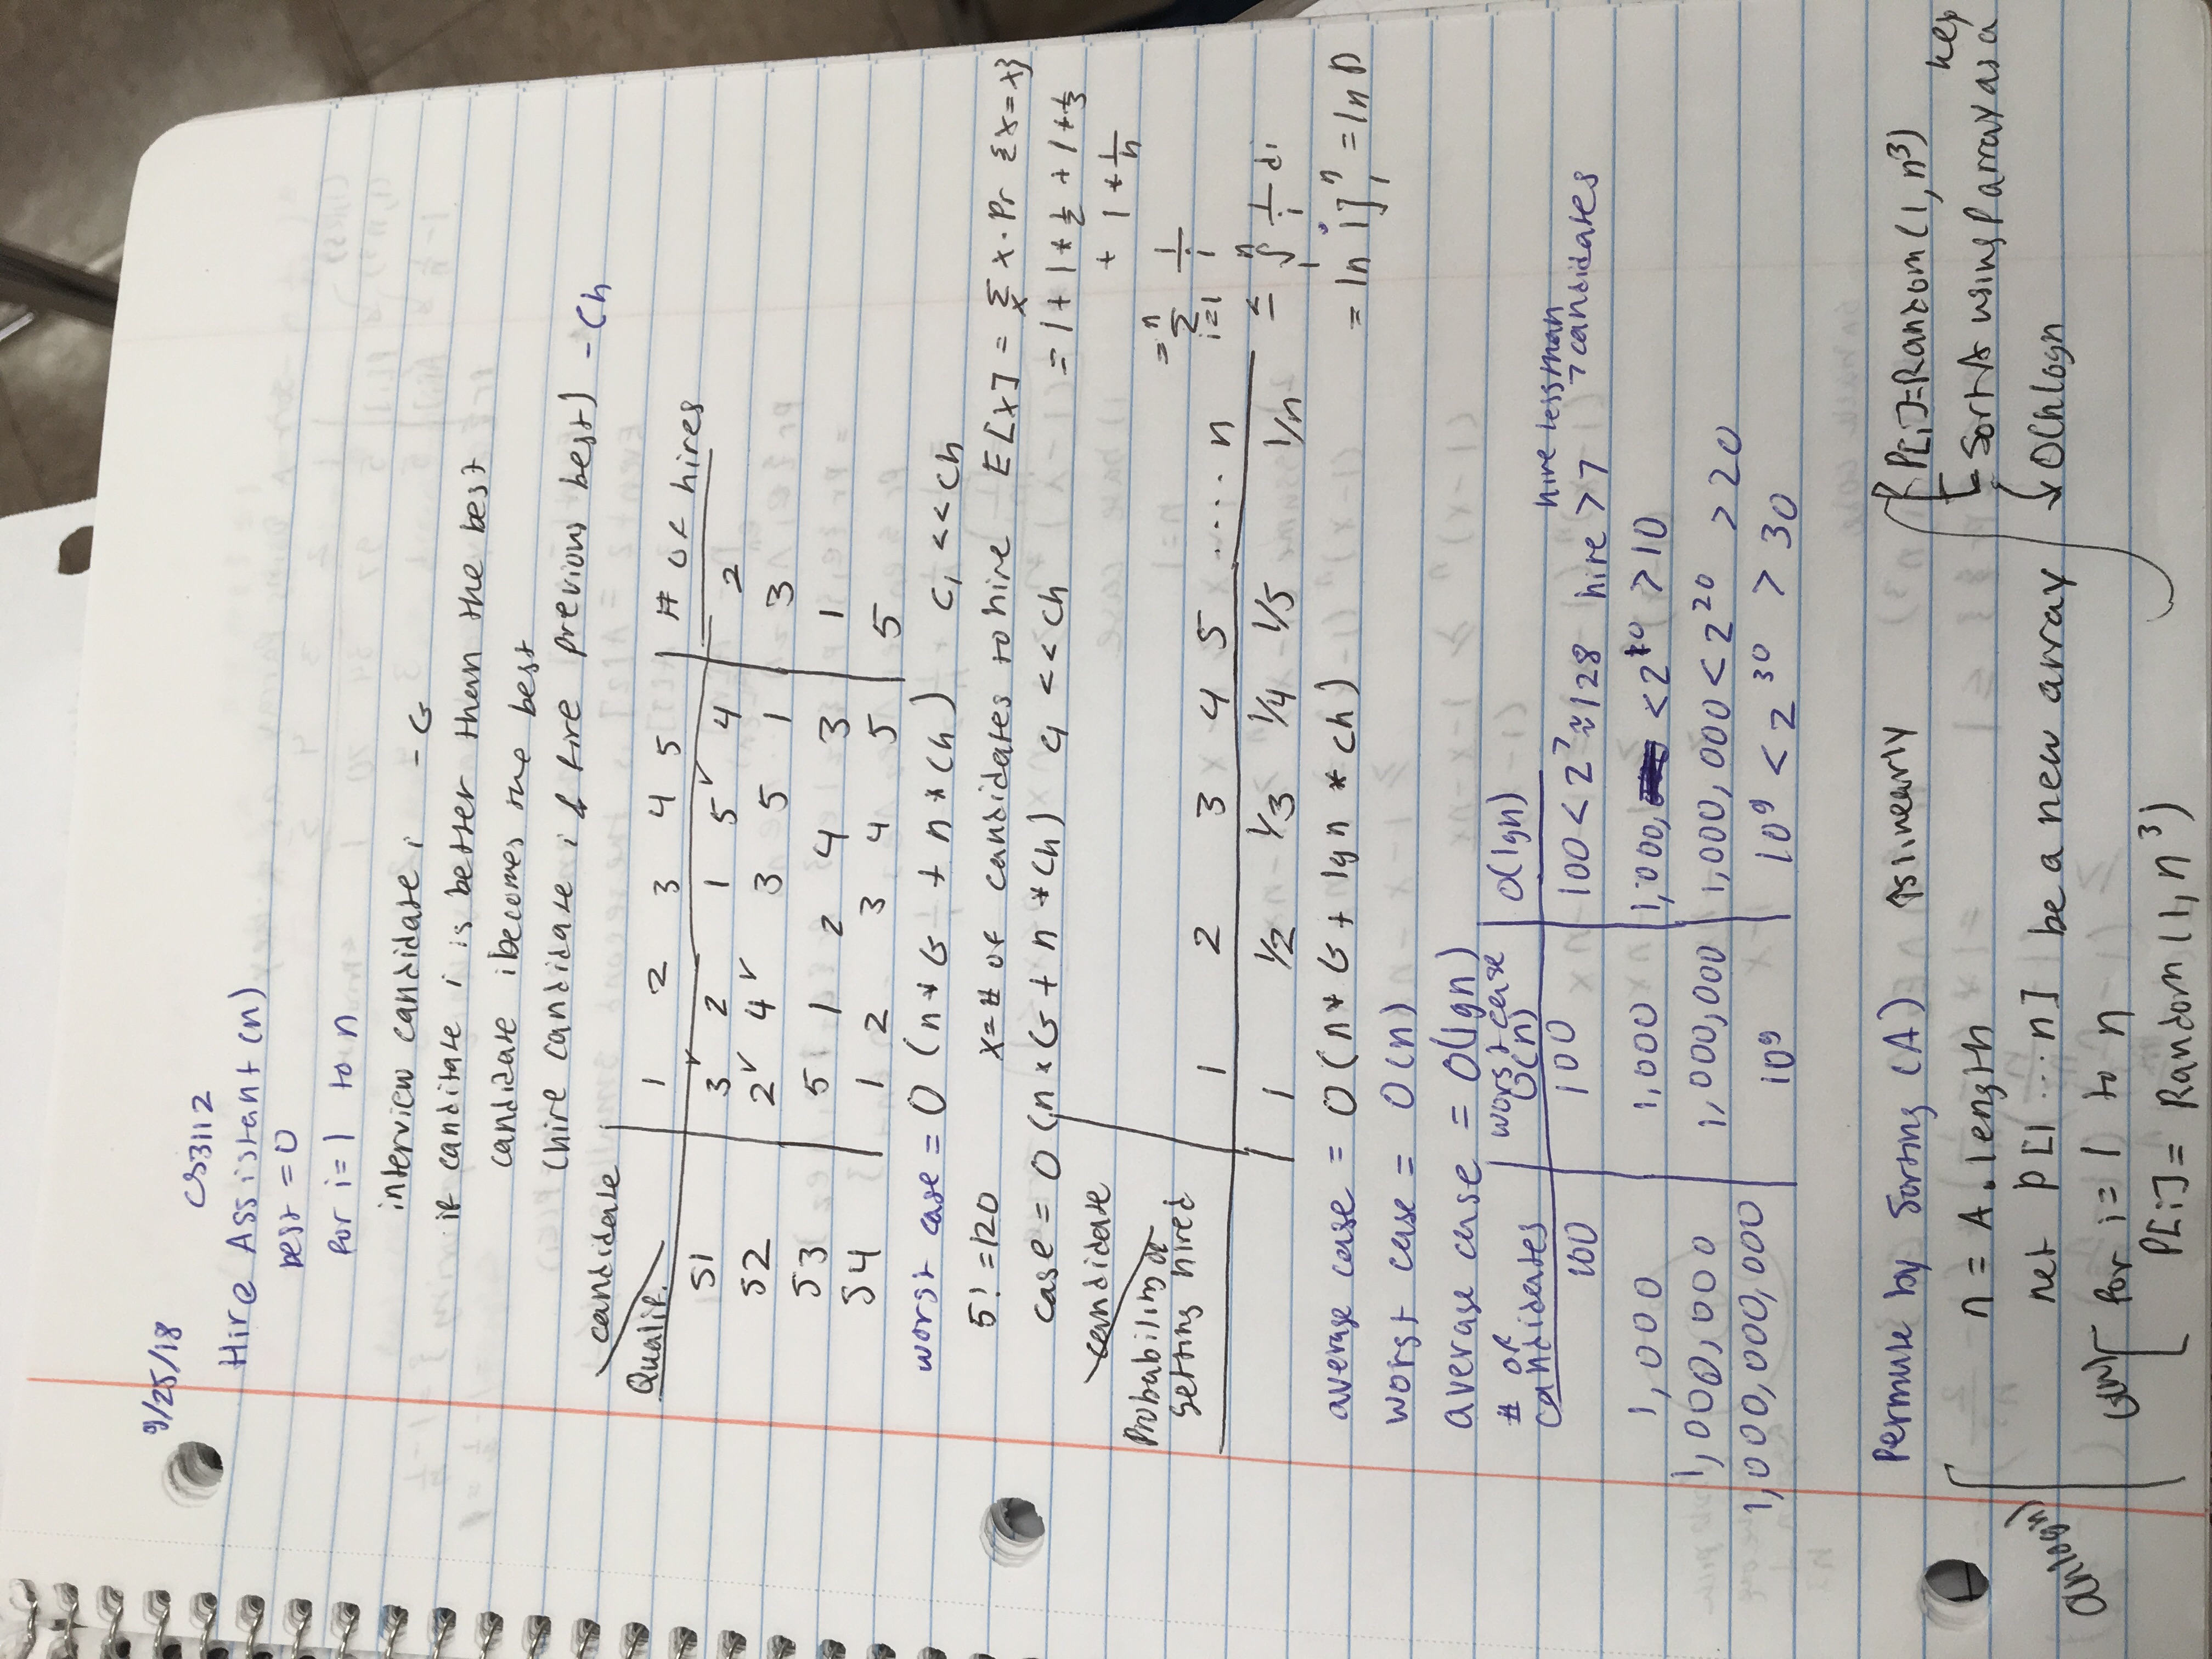 9/25/18 CS3112
Hire Assistant (n)
best = 0
for i = 1 to n
interview candidate i - Ci
if canditate i is better than the best
candidate i becomes the best
(hire candidate i & fire previous best) - Ch
candidate
Qualif. 1 2 3 4 5 # of hires
S1 3✓ 2 1 5✓ 4 2
S2 2✓ 4✓ 3 5 1 3
S3 5 1 2 4 3 1
S4 1 2 3 4 5 5
worst case = O(n * Ci + n * Ch) Ci << Ch
5! = 120 x = # of candidates to hire E[x] = Σ x · Pr {x = x}
x
case = O(n * Ci + n * Ch) Ci << Ch = 1 + 1 * 1/2 + 1 * 1/3
+ 1 * 1/n
candidate
Probability of getting hired
1 2 3 4 5 .... n
1 1/2 1/3 1/4 1/5 1/n
= n Σ i=1 1/i
= n ∫ 1 1/i di
average case = O(n * Ci + lgn * Ch) = ln i]₁ⁿ = ln n
worst case = O(n)
average case = O(lgn)
# of candidates worst case O(n) O(lgn)
hire less than 7 candidates
100 100 100 < 2⁷ ≈ 128 hire > 7
1,000 1,000 1,000 < 2¹⁰ > 10
1,000,000 1,000,000 1,000,000 < 2²⁰ > 20
1,000,000,000 10⁹ 10⁹ < 2³⁰ > 30
Permute by Sorting (A) linearly
P[i] = Random(1, n³)
n = A.length
Sort A using P array as a key
net P[1 ... n] be a new array O(nlogn
O(nlogn)
for i = 1 to n
P[i] = Random(1, n³)